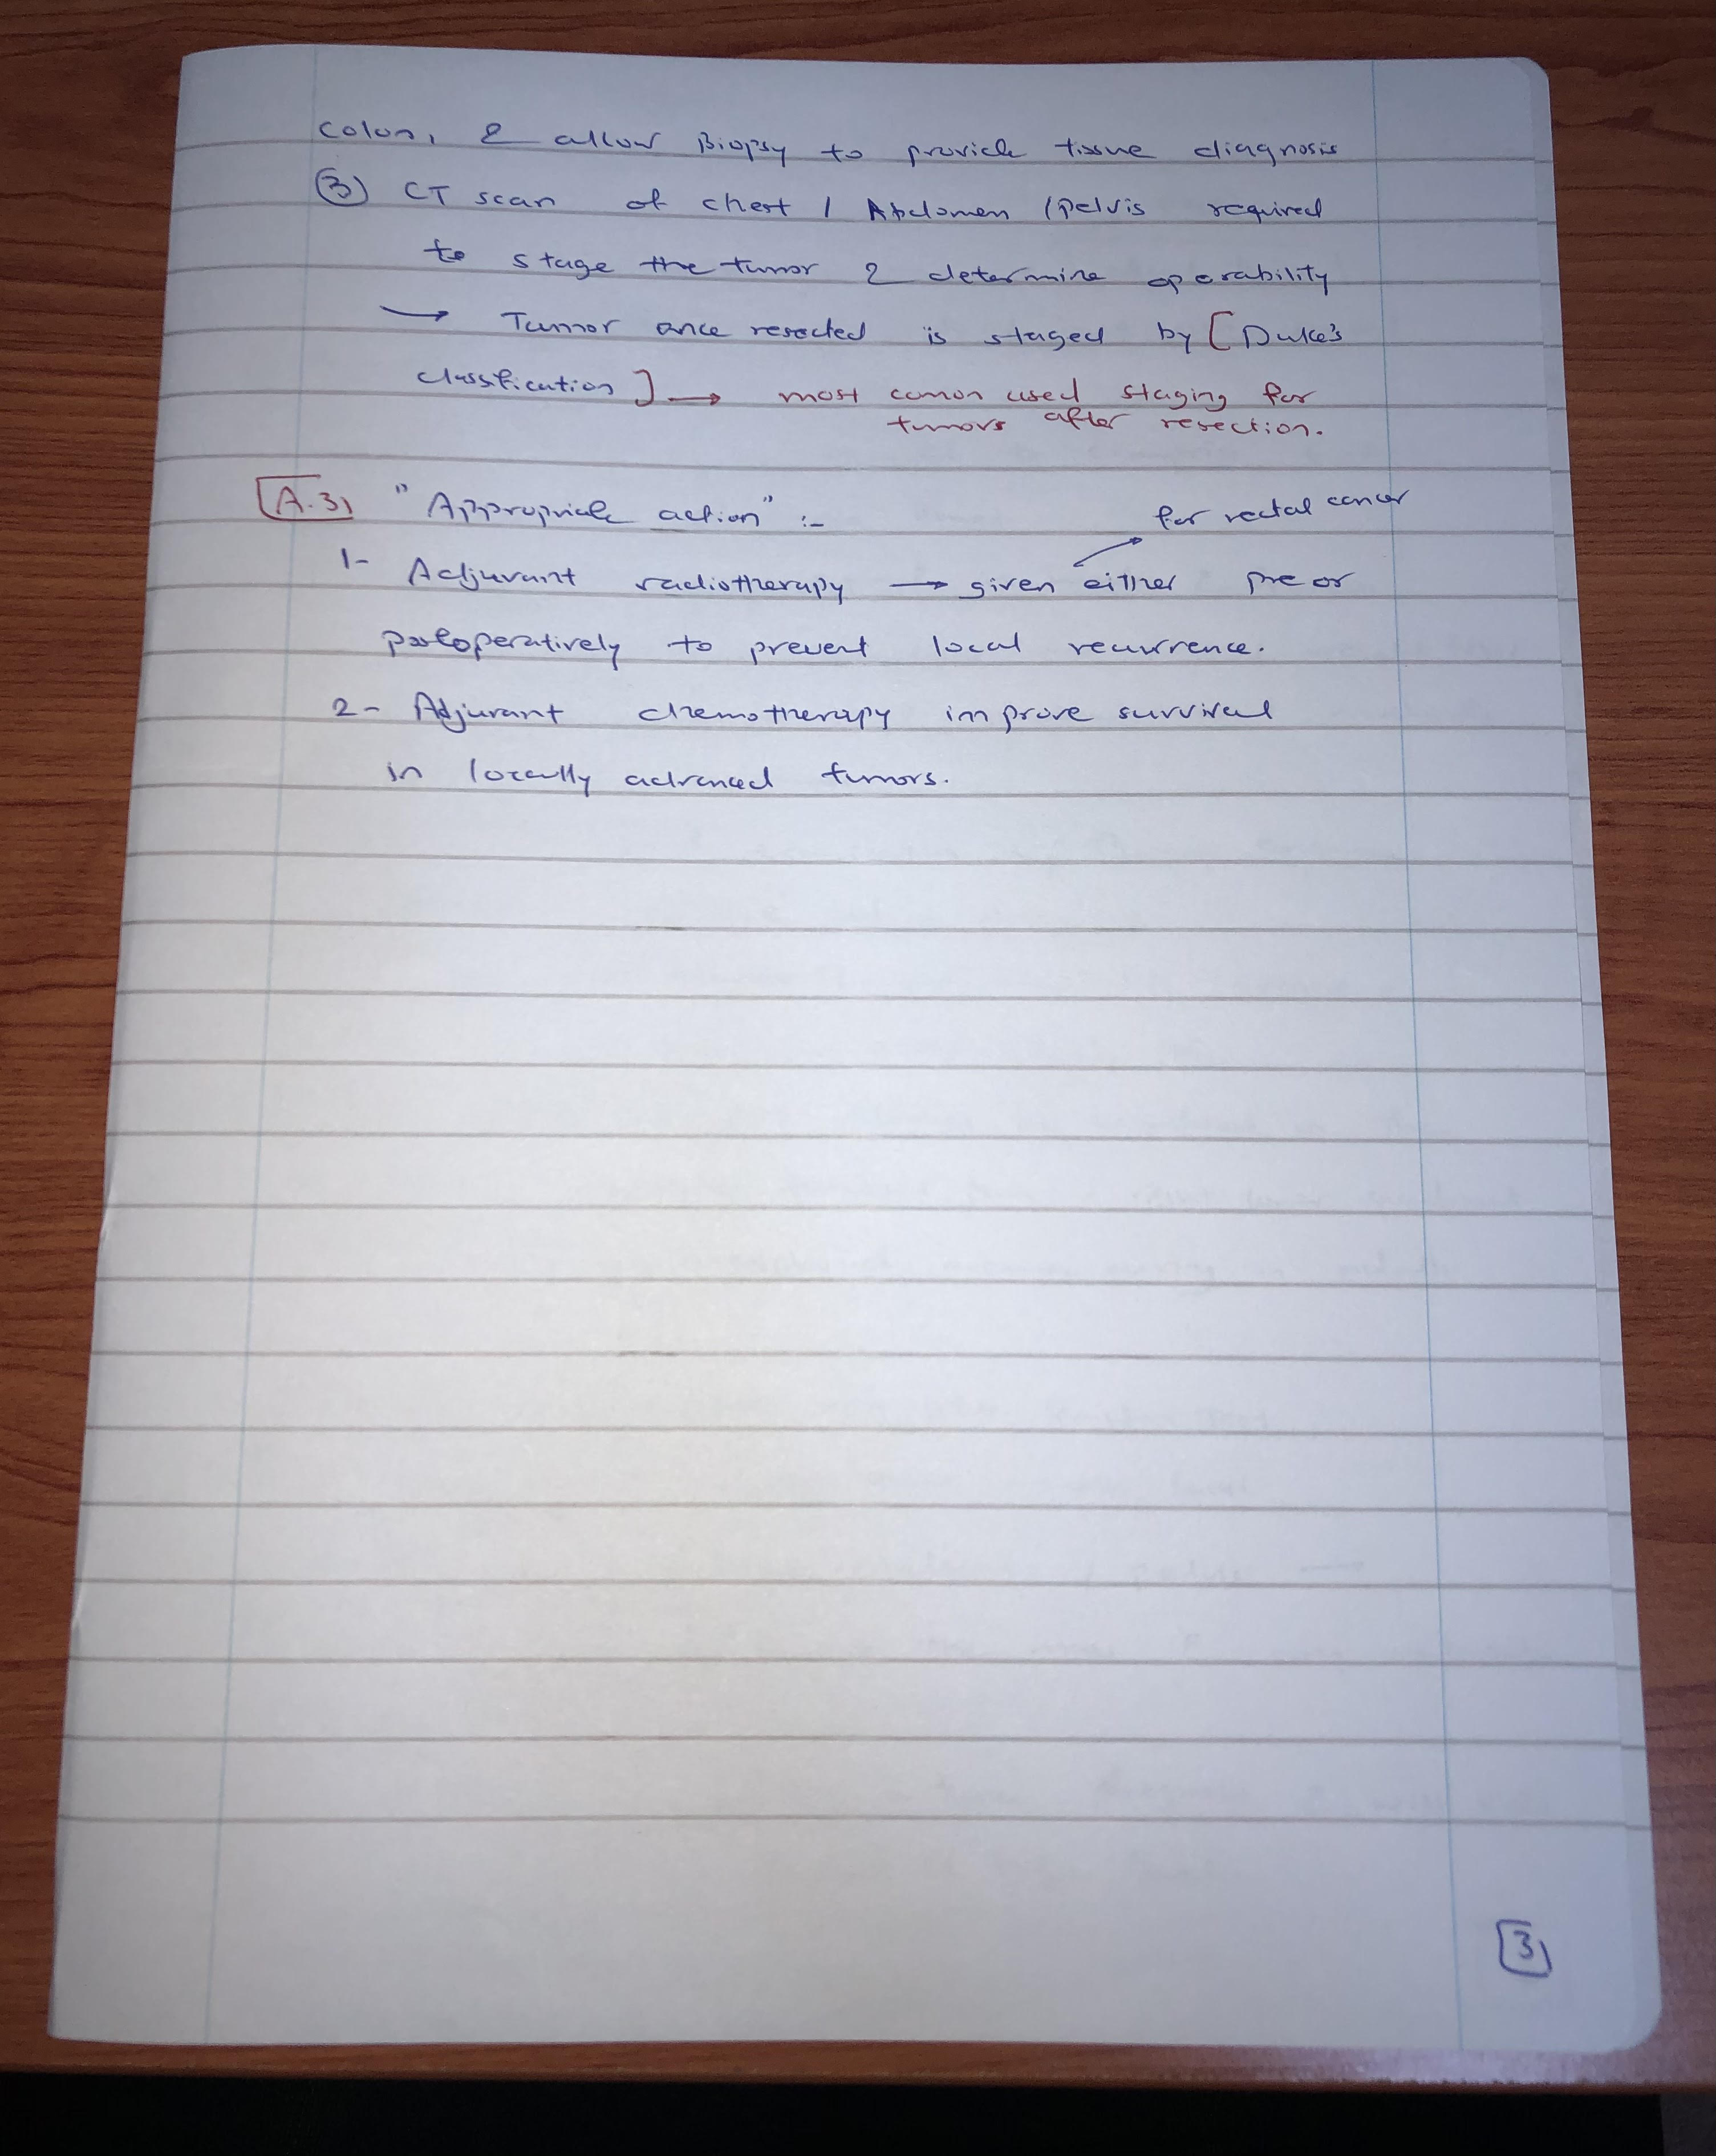 colon, & allow Biopsy to provide tissue diagnosis
③ CT scan of chest / Abdomen / pelvis required
to stage the tumor & determine operability
→ Tumor once resected is staged by [Duke's
classification] → most comon used staging for
tumors after resection.
A.3) "Appropriate action" :-
for rectal cancer
1- Adjuvant radiotherapy → given either pre or
postoperatively to prevent local recurrence.
2- Adjuvant chemotherapy improve survival
in locally advanced tumors.
3